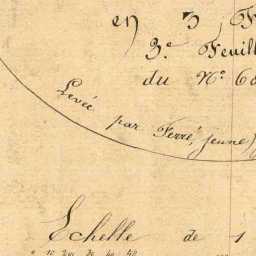 en 3 F
3.e Feuill
du N.o 60
Levée par Ferré, jeune,
Echelle de 1